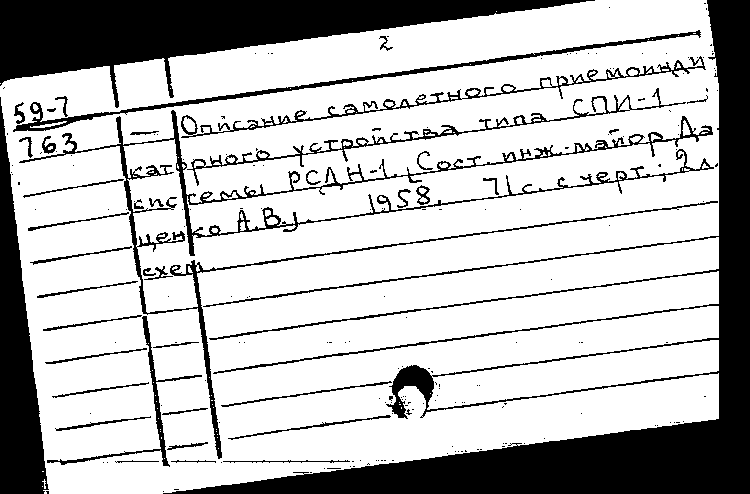 2
59-7
763
— Описание самолетного приемоинди-
каторного устройства типа СПИ-1
системы РСДН-1. [Сост. инж.-майор Да-
ценко А.В.]. 1958. 71 с. с черт.; 2 л.
схем.